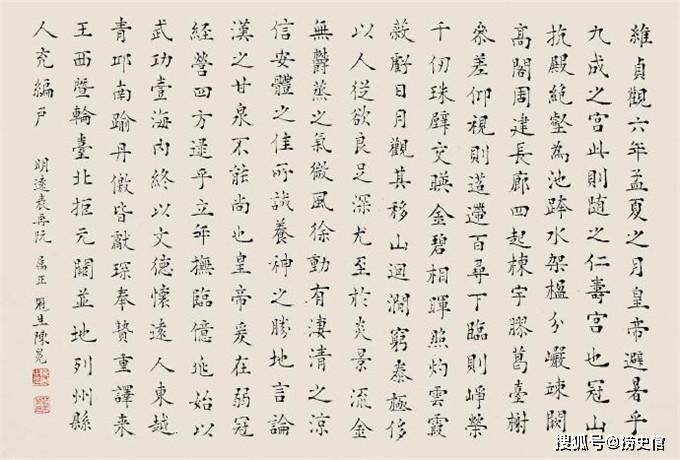 維貞觀六年孟夏之月皇帝避暑乎
九成之宮此則隨之仁壽宮也冠山
抗殿絶壑為池跨水架楹分巖竦闕
高閣周建長廊四起棟宇膠葛臺榭
參差仰視則迢遰百尋下臨則崢嶸
千仞珠璧交暎金碧相暉照灼雲霞
蔽虧日月觀其移山迴澗窮泰極侈
以人從欲良足深尤至於炎景流金
無鬱蒸之氣微風徐動有淒清之涼
信安體之佳所誠養神之勝地言論
漢之甘泉不能尚也皇帝爰在弱冠
經營四方逮乎立年撫臨億兆始以
武功壹海內終以文德懷遠人東越
青邱南踰丹儌皆獻琛奉贄重譯来
王西曁輪臺北拒元闕並地列州縣
人充編戶
明遠 屬正 冠生陳冕
搜狐号@捞史官